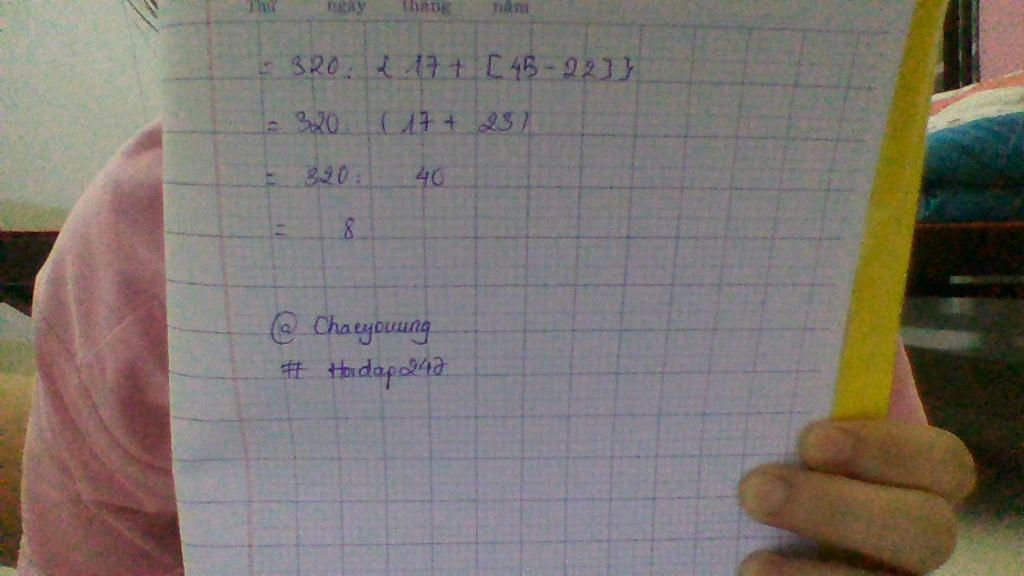 Thứ ngày tháng năm
= 320 : { 17 + [ 45 - 22 ] }
= 320 : ( 17 + 23 )
= 320 : 40
= 8
@ Chaeyouung
# Hoidap247